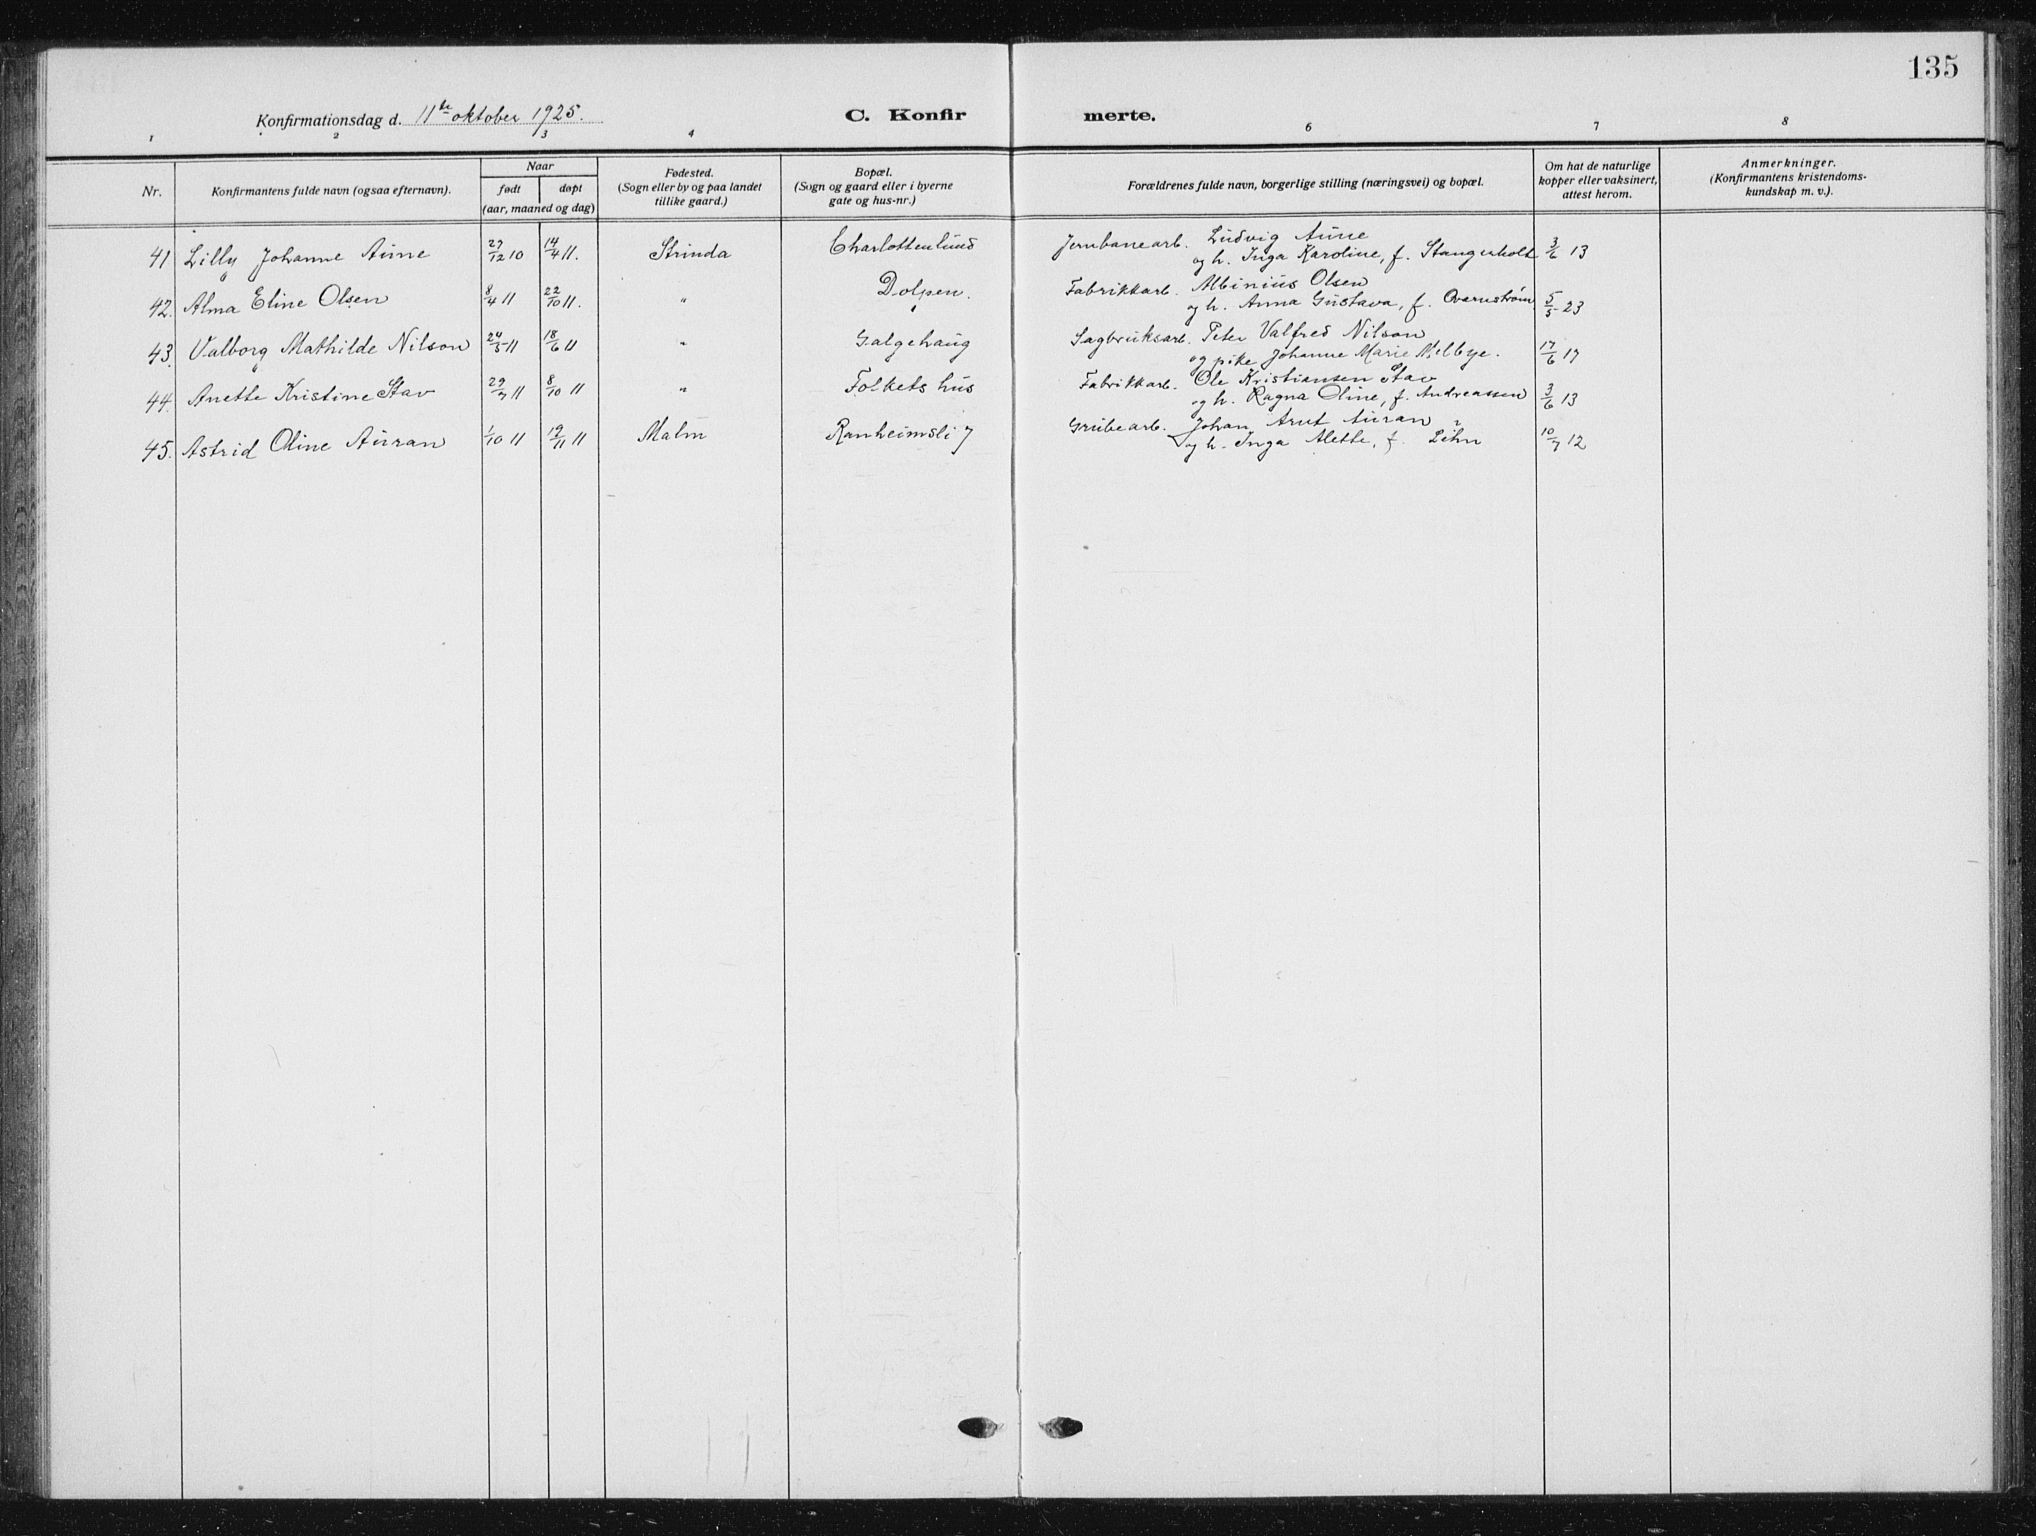 135
Konfirmationsdag d. 11te oktober 1925.
C. Konfirmerte.
1 2 3 4 6 7 8
Nr.
Konfirmantens fulde navn (ogsaa efternavn).
Naar
født døpt
(aar, maaned og dag)
Fødested.
(Sogn eller by og paa landet
tillike gaard.)
Bopæl.
(Sogn og gaard eller i byerne
gate og hus-nr.)
Forældrenes fulde navn, borgerlige stilling (næringsvei) og bopæl.
Om hat de naturlige
kopper eller vaksinert,
attest herom.
Anmerkninger.
(Konfirmantens kristendoms-
kundskap m. v.).
41 Lilly Johanne Aune 29/12 10 14/4 11. Strinda Charlottenlund Jernbanearb. Ludvig Aune
og h. Inga Karoline, f. Stangerholt 3/6 13
42. Alma Eline Olsen 8/4 11 22/10 11. " Dolpen. Fabrikkarb. Albinius Olsen
og h. Anna Gustava, f. Qvarnstrøm 5/5 23
43. Valborg Mathilde Nilson 24/5 11 18/6 11 " Galgehaug Sagbruksarb. Peter Valfred Nilson
og pike Johanne Marie Melbye. 17/6 17
44. Anette Kristine Stav 29/7 11 8/10 11 " Folkets hus Fabrikkarb. Ole Kristiansen Stav
og h. Ragna Oline, f. Andreassen 3/6 13
45. Astrid Oline Auran 1/10 11 19/11 11 Malm Ranheimsli 7 Grubearb. Johan Arnt Auran
og h. Inga Alette, f. Lehn 10/7 12